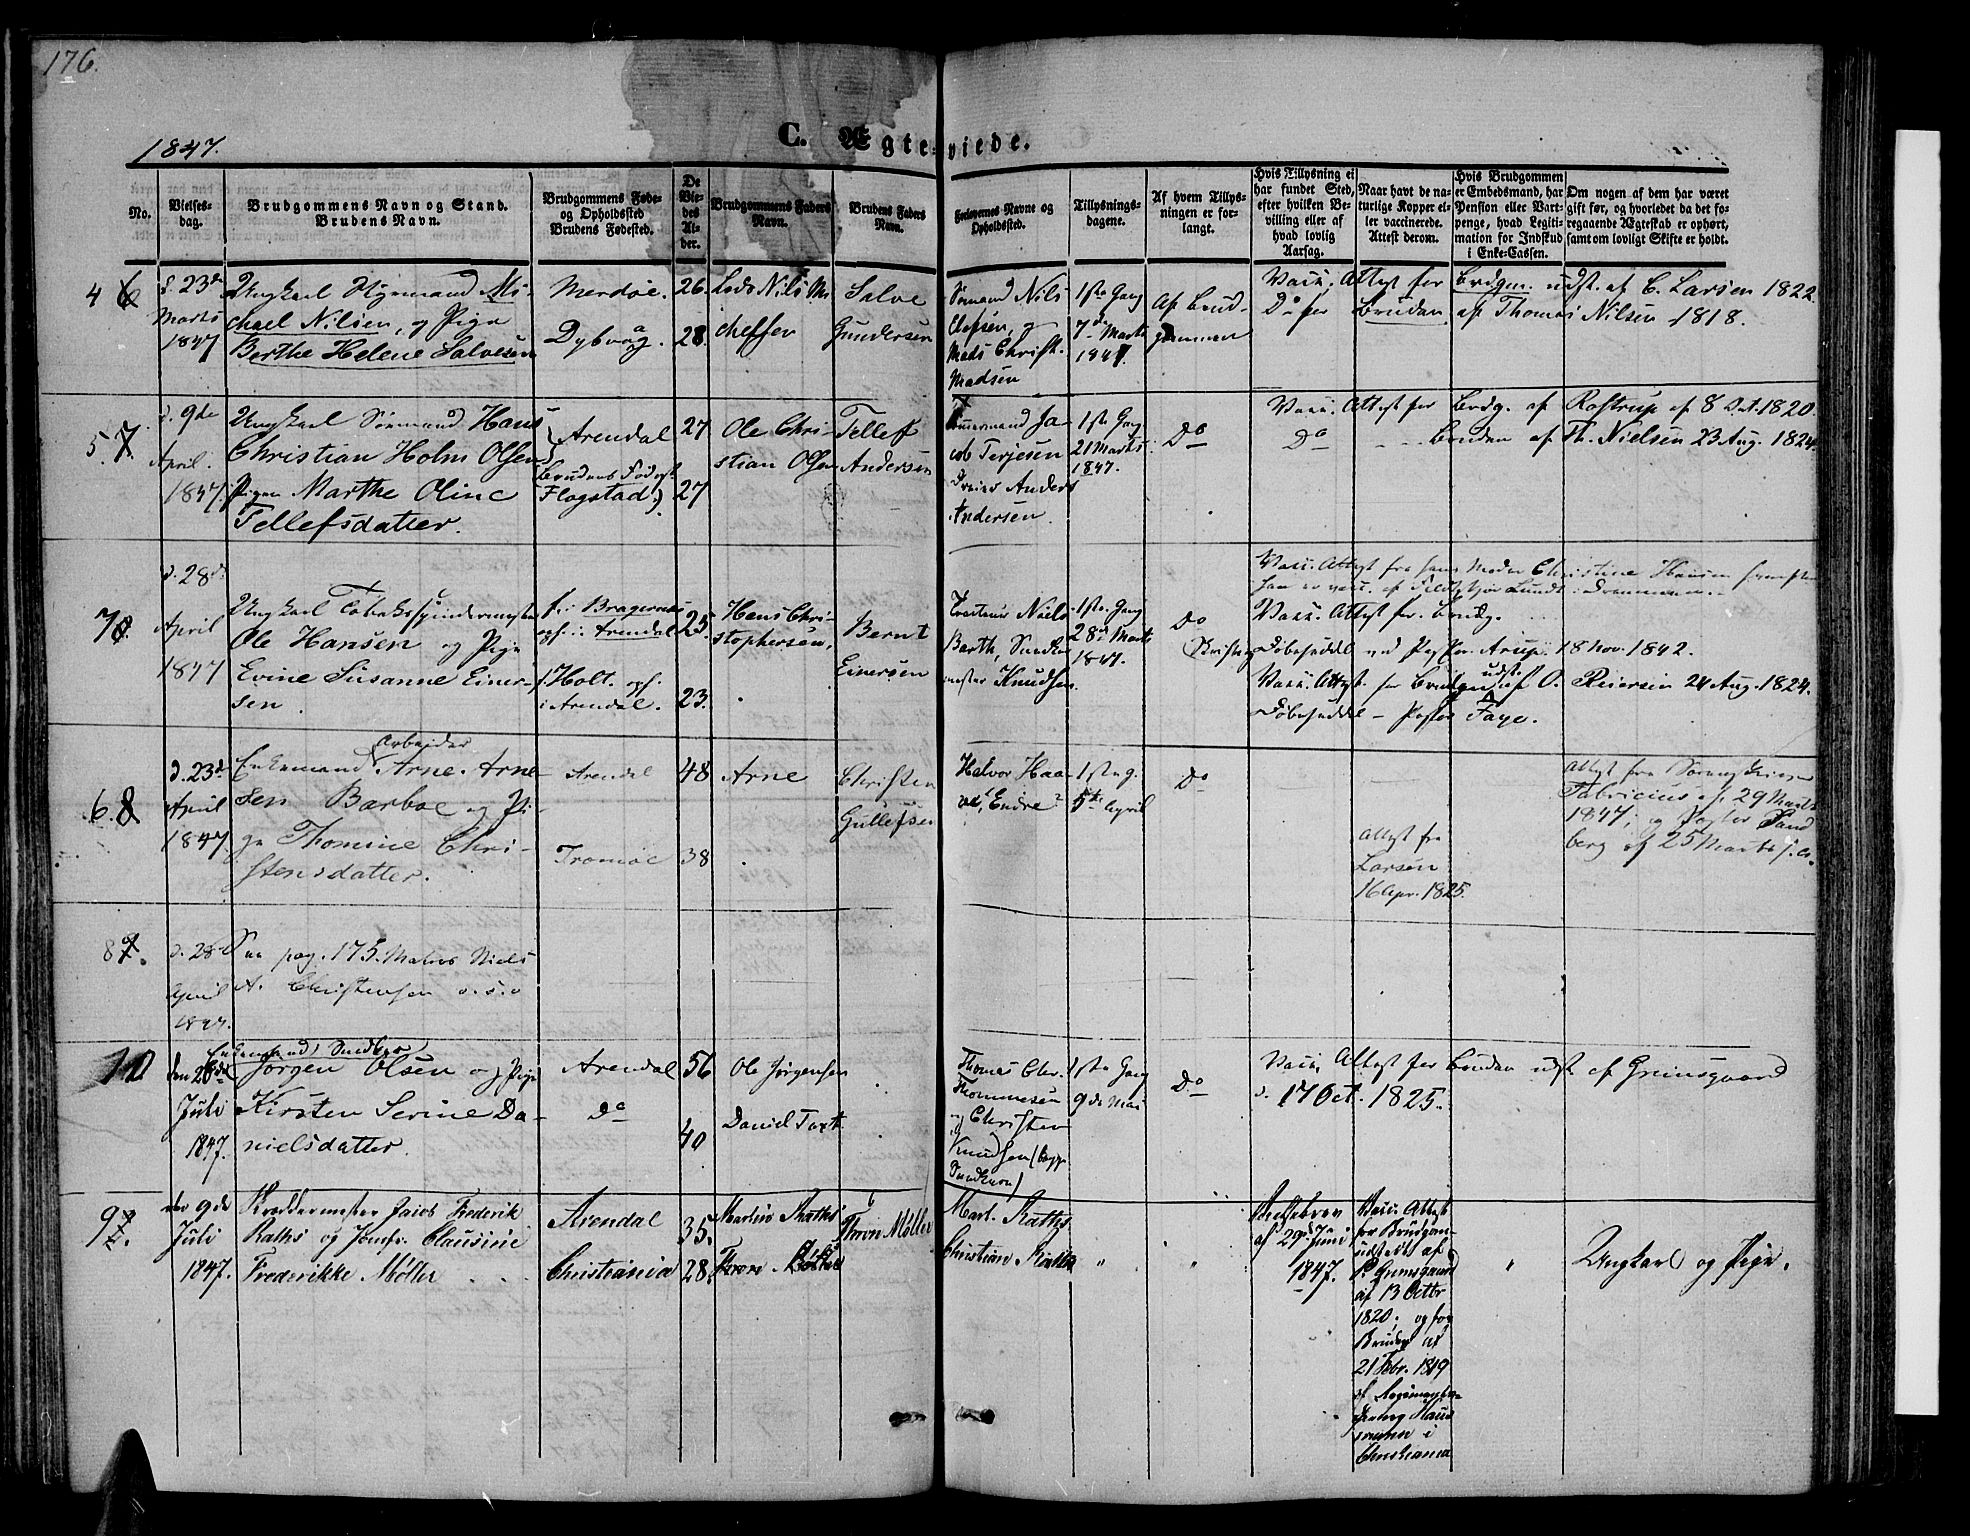 176.
1847.
C. Ægteviede.
No.
Vielses-
dag.
Brudgommens Navn og Stand.
Brudens Navn.
Brudgommens Føde-
og Opholdssted
Brudens Fødested.
De
Vie-
des
Al-
der.
Brudgommens Faders
Navn.
Brudens Faders
Navn.
Forlovernes Navne og
Opholdssted.
Tillysnings-
dagene.
Af hvem Tillys-
ningen er for-
langt.
Hvis Tillysning ei
har fundet Sted,
efter hvilken Be-
villing eller af
hvad lovlig
Aarsag.
Naar havt de na-
turlige Kopper el-
ler vaccinerede.
Attest derom.
Hvis Brudgommen
er Embedsmand, har
Pension eller Vart-
penge, hvad Legiti-
mation for Indskud
i Enke-Cassen.
Om nogen af dem har været
gift før, og hvorledet da det fo-
regaaende Ægteskab er ophørt,
samt om lovligt Skifte er holdt.
4
d. 23de
Marts
1847
Ungkarl Mi-
chael Nilsen, og Pige
Berthe Helene Salvesen
Merdøe.
Dybvaag.
26.
28.
Nils Mi
Salve
Gundersen
Sømand Nils
Olefsen, og
Mads Christ.
Madsen
1ste Gang
7de Marts
1847.
Af Brud-
gommen
Vacc. Attest for Brdgm. udst. af C. Larsen 1822.
Do for Bruden af Thomas Nilsen 1818.
5.
d. 9de
April.
1847
Ungkarl Sømand Hans
Christian Holm Olsen
Pigen Marthe Oline
Tellefsdatter.
Arendal
Brudens Fødest.
Flagstad
27
27
Ole Chri-
stian Olsen
Tellef
Andersen
Ja-
cob Terjesen
Anders
Andersen.
1ste Gang
21 Marts
1847.
Do
Vacc. Attest for Brdg. af Rostrup af 8 Oct. 1820.
Do Bruden af Th. Nielsen 23 Aug. 1824.
7
d. 28de
April
1847
Ungkarl Tobaksspindermester
Ole Hansen og Pige
Evine Susanne Einer-
sen.
f. i Bragernes
opf. i Arendal
f. Holt. opf.
i Arendal.
25.
23.
Hans Chri-
stophersen,
Bernt
Einersen
Niels
Barth, Snedker
mester Knudsen.
1ste Gang
28de Marts
1847.
Do
Vacc. Attest fra hans Moder Christine Hansen
Lund i Drammen.
Vacc. Attest for Brudg.
Døbeseddel ved Pastor Arup. 18 Nov. 1842.
Vacc. Attest for Bruden udst. af O. Reiersen 24 Aug. 1824.
Døbeseddel - Pastor Faye.
6.
d. 23de
April
1847
Enkemand Arbeider Arne Arne-
sen Barboe og Pi-
ge Thomine Chri-
stensdatter.
Arendal
Tromøe
48
38
Arne
Christen
Gullefsen
Halvor Haa-
5te April
Do
Attest fra
Larsen
16 Apr. 1825.
Attest fra Sorenskriver
Fabricius af 29 Marts
1847, og Pastor Sand
berg af 25 Marts s. A.
8
d. 28d
April
1847.
See pag. 175. Matros Niels
A. Christensen o. s. v
10
Juli
1847.
Enkemand,
Jørgen Olsen og Pige
Kirsten Serine Da-
nielsdatter.
Arendal
Do
56
40
Ole Jørgensen
Daniel
Thomas Chr.
Thommesen
og Christen
Knudsen (begge
1ste Gang
9de Mai
Do
Vacc. Attest for Bruden udst. af Grimsgaard
d. 17 Oct. 1825.
9
den 9de
Juli
1847.
Skræddermester Jacob Frederik
Raths og Jomfr. Clausine
Frederikke Møller
Arendal
Christiania
35.
28.
Martin Raths
Thron Møller
Mart. Raths
Christian Raths
"
"
af 29de Juni
1847.
Vacc. Attest
for Brudgom.
udstedt af
P. Grimsgaard
af 13 Octbr
1820, og for
Bruden af
21 Febr. 1819
i
Christiania
"
Ungkarl og Pige.